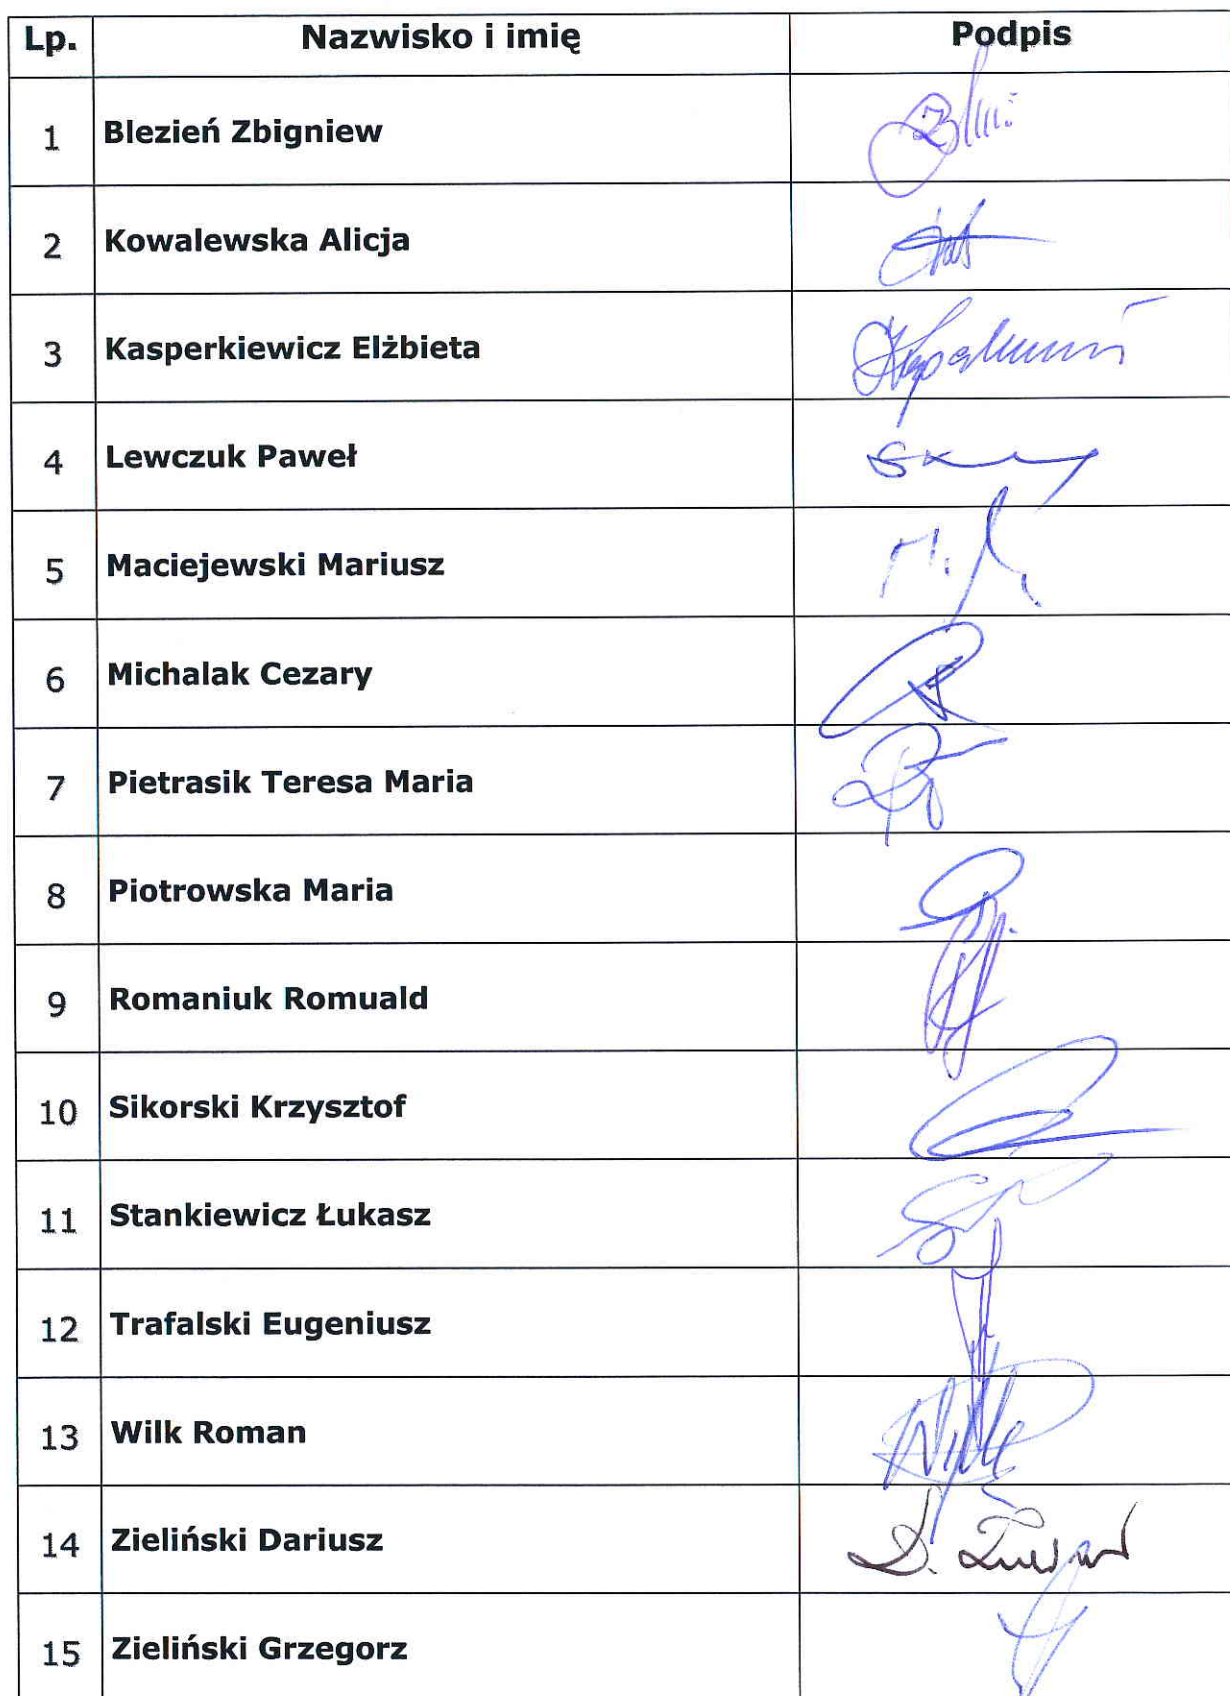 Lp. Nazwisko i imię Podpis
1 Blezień Zbigniew
2 Kowalewska Alicja
3 Kasperkiewicz Elżbieta
4 Lewczuk Paweł
5 Maciejewski Mariusz
6 Michalak Cezary
7 Pietrasik Teresa Maria
8 Piotrowska Maria
9 Romaniuk Romuald
10 Sikorski Krzysztof
11 Stankiewicz Łukasz
12 Trafalski Eugeniusz
13 Wilk Roman
14 Zieliński Dariusz
15 Zieliński Grzegorz